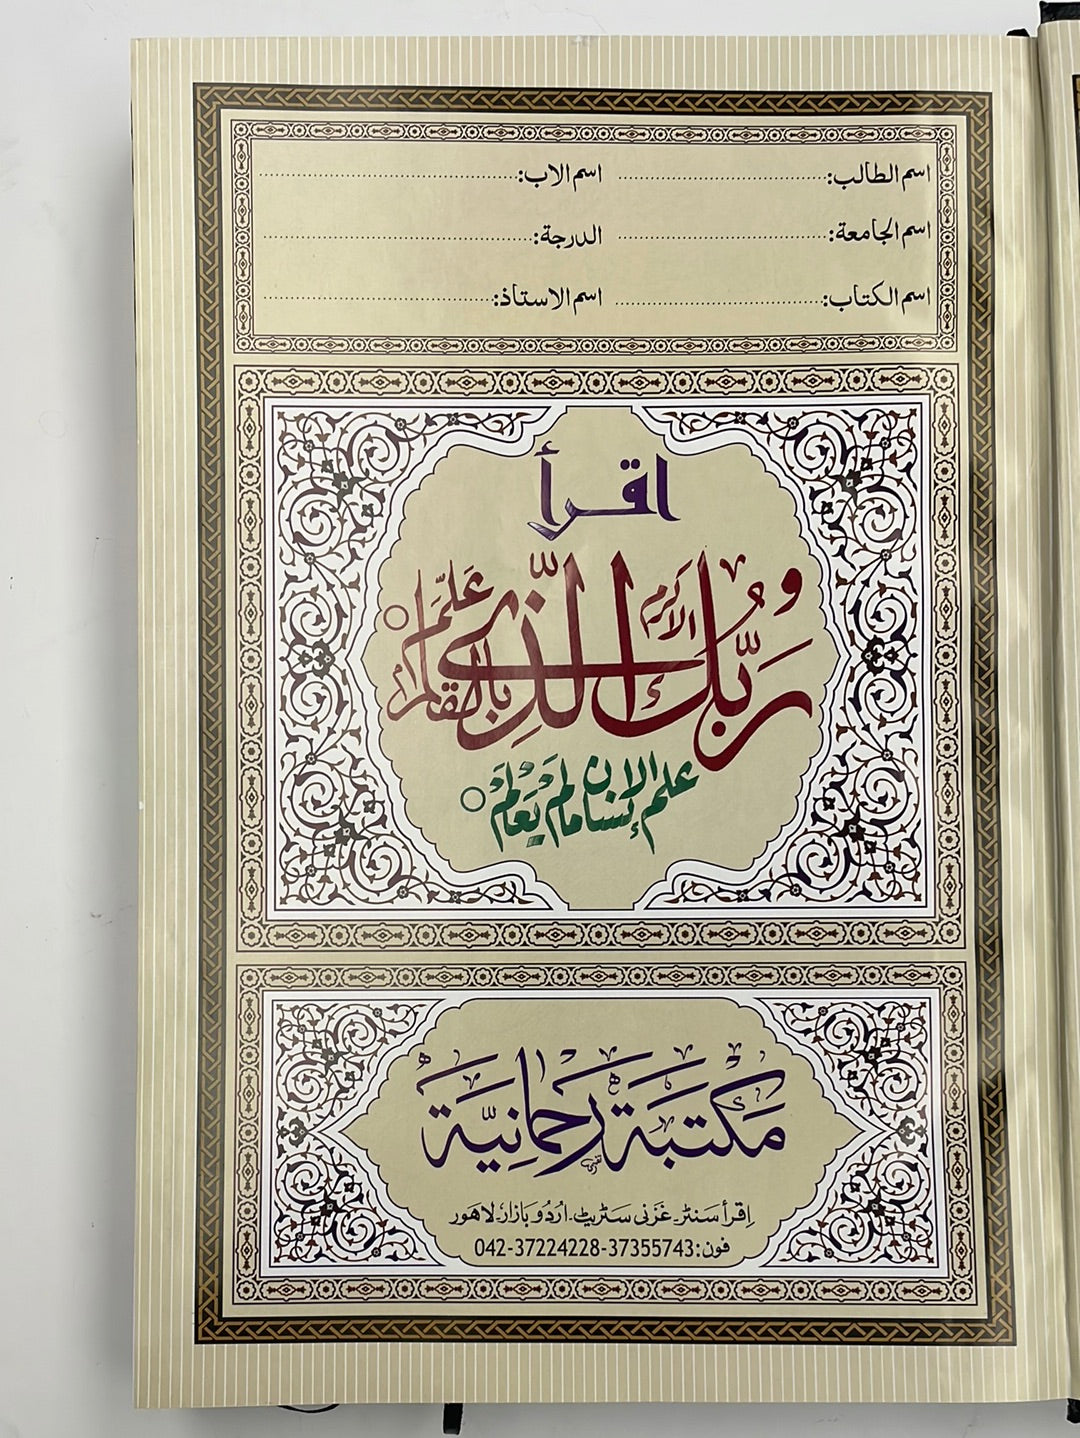 اسم الطالب: اسم الاب:
اسم الجامعة: الدرجة:
اسم الكتاب: اسم الاستاذ:
اقرأ
وربك الاكرم الذی علم بالقلم
علم الانسان مالم یعلم
مكتبة رحمانية
اِقرأ سَنٹر۔ غَزنی سٹریٹ۔ اُردُو بَازار۔ لاهَور
فون: 37355743-37224228-042